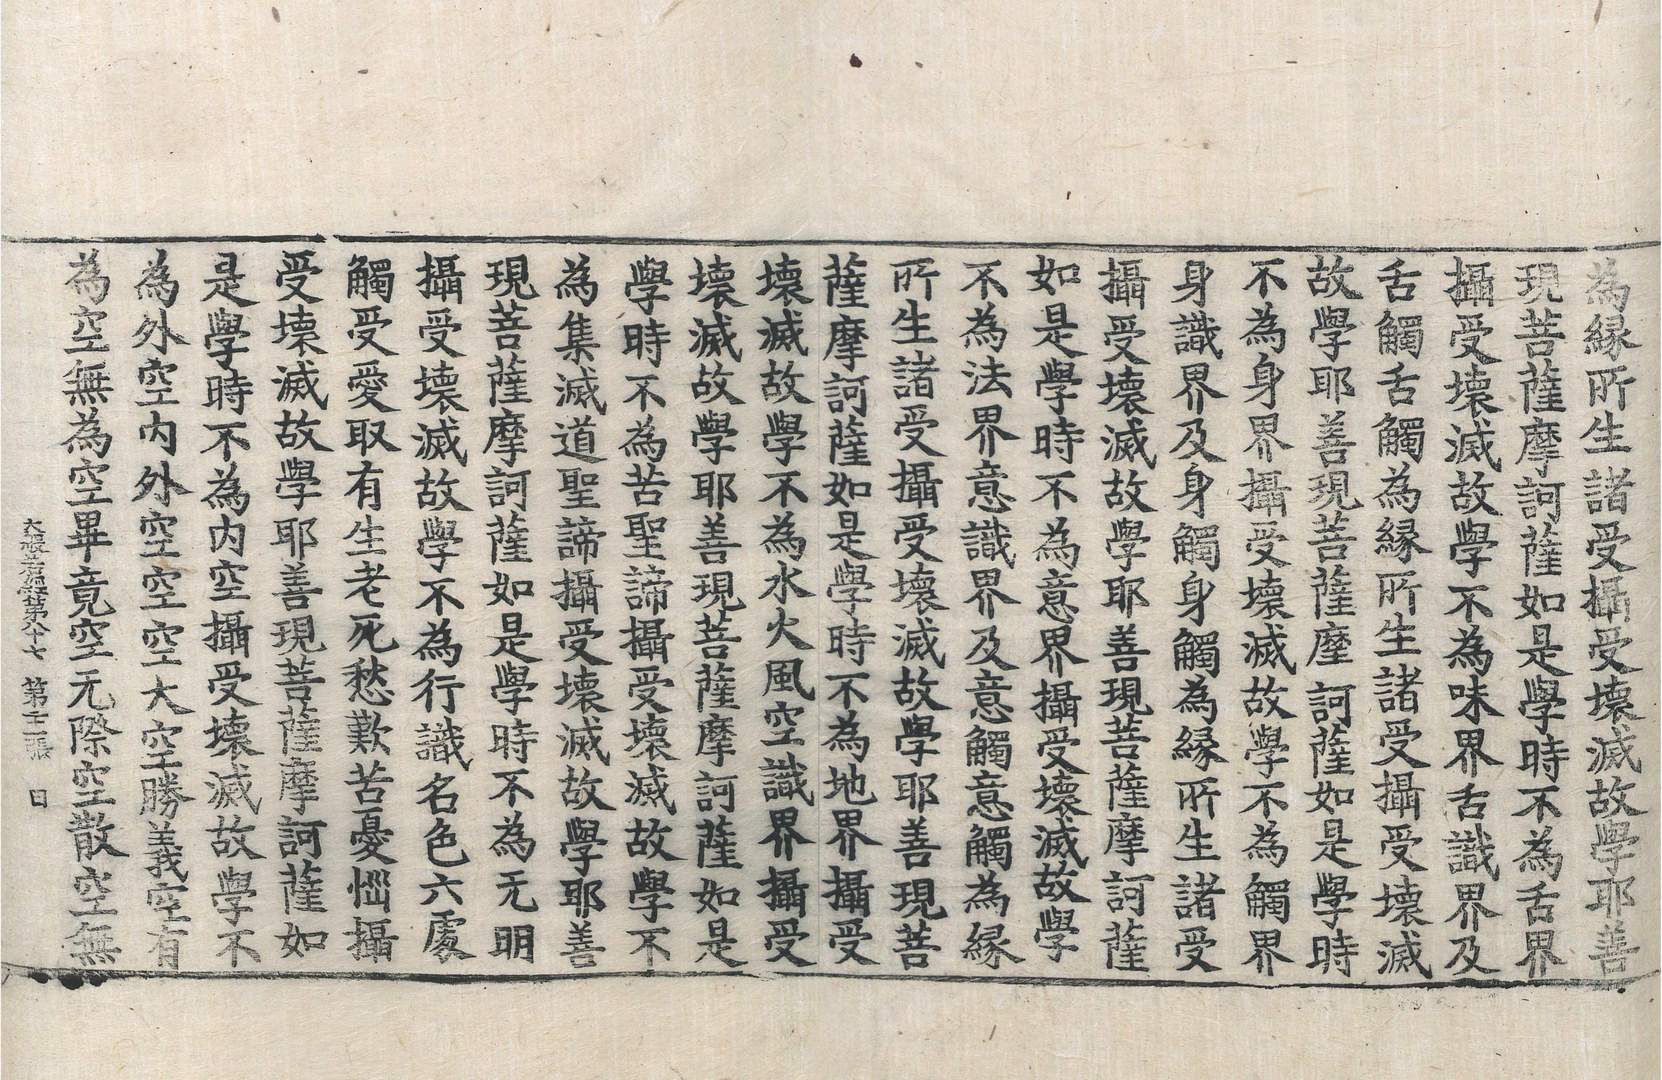 為縁所生諸受攝受壞滅故學耶善
現菩薩摩訶薩如是學時不為舌界
攝受壞滅故學不為味界舌識界及
舌觸舌觸為縁所生諸受攝受壞滅
故學耶善現菩薩摩訶薩如是學時
不為身界攝受壞滅故學不為觸界
身識界及身觸身觸為縁所生諸受
攝受壞滅故學耶善現菩薩摩訶薩
如是學時不為意界攝受壞滅故學
不為法界意識界及意觸意觸為縁
所生諸受攝受壞滅故學耶善現菩
薩摩訶薩如是學時不為地界攝受
壞滅故學不為水火風空識界攝受
壞滅故學耶善現菩薩摩訶薩如是
學時不為苦聖諦攝受壞滅故學不
為集滅道聖諦攝受壞滅故學耶善
現菩薩摩訶薩如是學時不為无明
攝受壞滅故學不為行識名色六處
觸受愛取有生老死愁歎苦憂惱攝
受壞滅故學耶善現菩薩摩訶薩如
是學時不為内空攝受壞滅故學不
為外空内外空空空大空勝義空有
為空無為空畢竟空无際空散空無
大般若經第八十七 第十二張 日